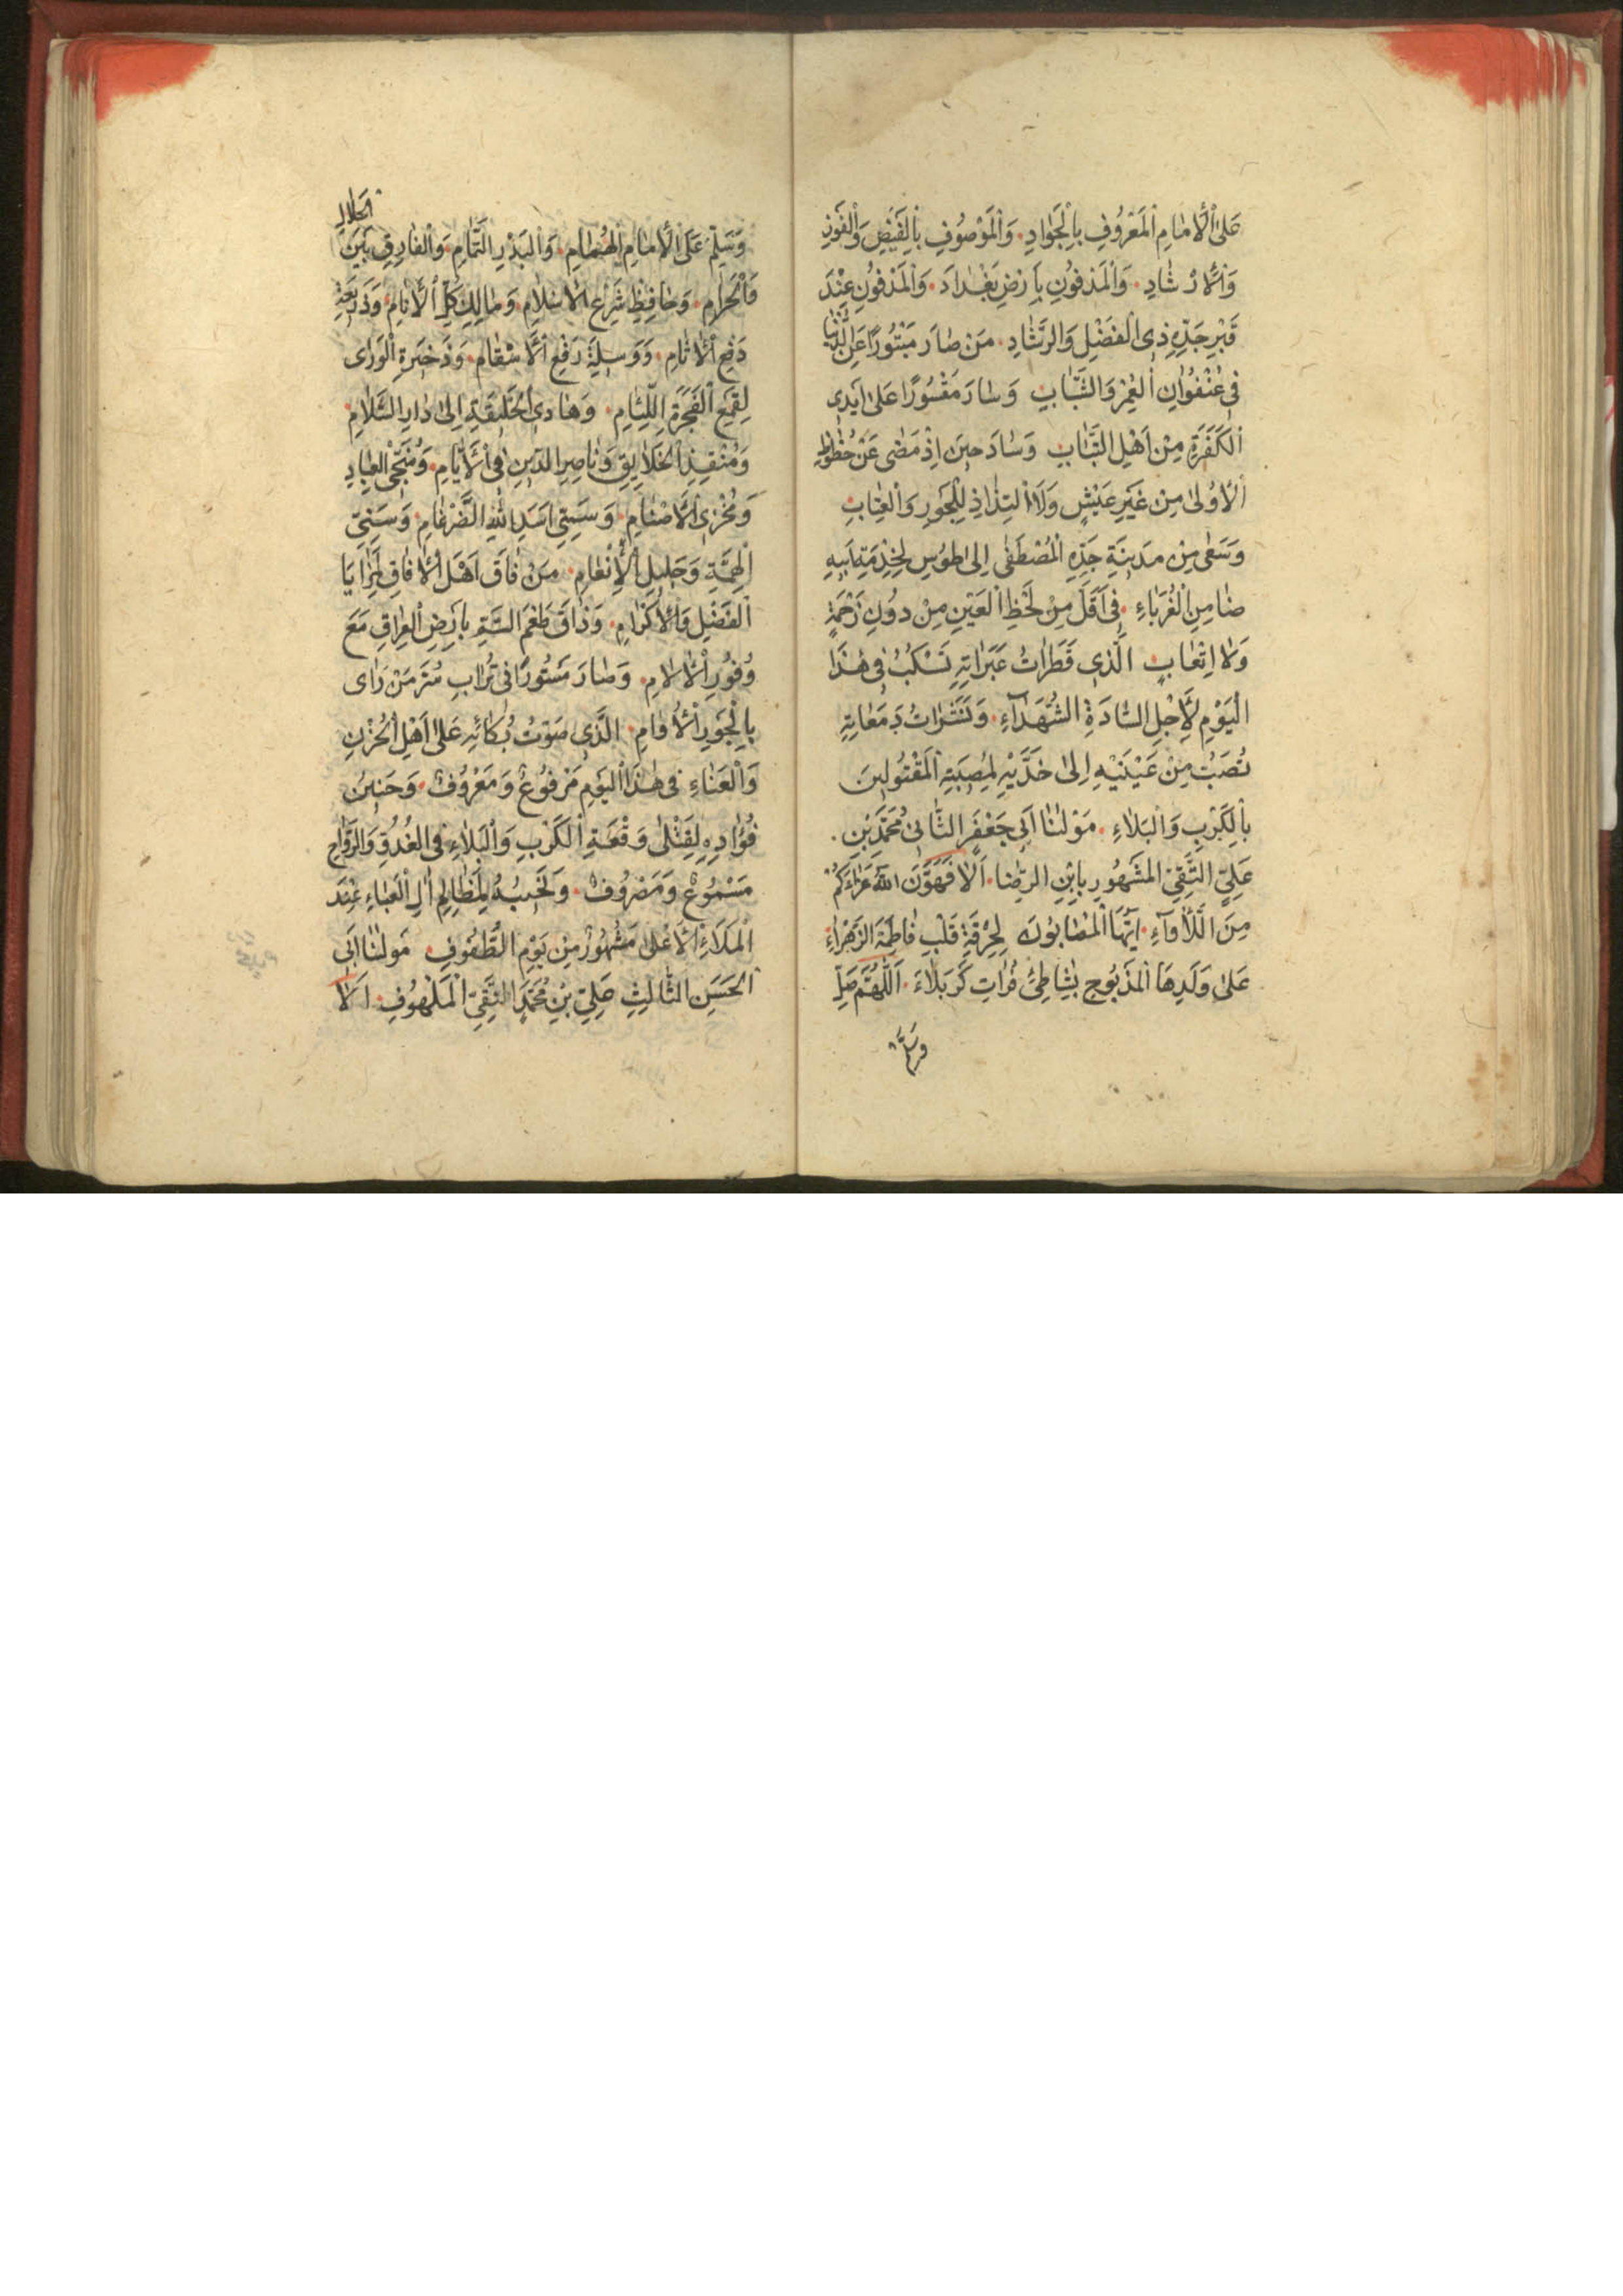 عَلَى الْأِمَامِ الْمَعْرُوفِ بِالْجَوَادِ وَالْمَوْصُوفِ بِالْفَيْضِ وَالْفَوْزِ
وَالْأِرْشَادِ وَالْمَدْفُونِ بِأَرْضِ بَغْدَادَ وَالْمَدْفُونِ عِنْدَ
قَبْرِ جَدِّهِ ذِى الْفَضْلِ وَالرَّشَادِ مَنْ صَارَ مَبْتُورًا عَنِ الدُّنْيَا
فِى عُنْفُوَانِ الْعُمْرِ وَالشَّبَابِ وَسَارَ مَقْسُورًا عَلَى اَيْدِى
الْكَفَرَةِ مِنْ اَهْلِ التَّبَابِ وَسَادَ حِينَ اِذْ مَضَى عَنْ حُظُوظِ
الْاُولَى مِنْ غَيْرِ عَيْشٍ وَلَا الْتِذَاذِ لِلْجَوْرِ وَالْعِتَابِ
وَسَعَى مِنْ مَدِينَةِ جَدِّهِ الْمُصْطَفَى اِلَى طُوسِ لِخِدْمَةِ اَبِيهِ
ضَامِنِ الْغُرَبَاءِ فِى اَقَلَّ مِنْ لَحْظِ الْعَيْنِ مِنْ دُونِ زَحْمَةٍ
وَلَا اِتْعَابٍ الَّذِى قَطَرَاتُ عَبَرَاتِهِ تَسْكُبُ فِى هٰذَا
الْيَوْمِ لِأَجْلِ السَّادَةِ الشُّهَدَآءِ وَنَثَرَاتُ دَمَعَاتِهِ
تُصَبُّ مِنْ عَيْنَيْهِ اِلَى خَدَّيْهِ لِمُصِيبَةِ الْمَقْتُولِينَ
بِالْكَرْبِ وَالْبَلَاءِ مَوْلٰنَا اَبِى جَعْفَرٍ الثَّانِى مُحَمَّدِ بْنِ
عَلِىٍّ التَّقِىِّ الْمَشْهُورِ بِابْنِ الرِّضَا اَلَا فَهَوَّنَ اللّٰهُ عَزَاءَكُمْ
مِنَ اللَّأْوَآءِ اَيُّهَا الْمُصَابُونَ لِحُرْقَةِ قَلْبِ فَاطِمَةَ الزَّهْرَاءِ
عَلَى وَلَدِهَا الْمَذْبُوحِ بِشَاطِئِ فُرَاتِ كَرْبَلَاءَ اَللّٰهُمَّ صَلِّ
وسلم
وَسَلِّمْ عَلَى الْأِمَامِ الْهُمَامِ وَالْبَدْرِ التَّمَامِ وَالْفَارِقِ بَيْنَ الحلال
وَالْحَرَامِ وَحَافِظِ شَرْعِ الْاِسْلَامِ وَمَالِكِ كُلِّ الْأَنَامِ وَذَرِيعَةِ
دَفْعِ الْأَثَامِ وَوَسِيلَةِ رَفْعِ الْأَسْقَامِ وَذَخِيرَةِ الْوَرَى
لِقَمْعِ الْفَجَرَةِ اللِّئَامِ وَهَادِى الْخَلِيقَةِ اِلَى دَارِ السَّلَامِ
وَمُنْقِذِ الْخَلَايِقِ وَنَاصِرِ الدِّينِ فِى الْأَيَّامِ وَمُنَجِّى الْعِبَادِ
وَمُخْزِى الْأَصْنَامِ وَسَمِىِّ اَسَدِ اللّٰهِ الضَّرْغَامِ وَسَنِىِّ
الْهِمَّةِ وَجَلِيلِ الْأِنْعَامِ مَنْ فَاقَ اَهْلَ الْأَفَاقِ بِمَزَايَا
الْفَضْلِ وَالْأِكْرَامِ وَذَاقَ طَعْمَ السَّمِّ بِأَرْضِ الْعِرَاقِ مَعَ
وُفُورِ الْأَلَامِ وَصَارَ مَسْتُورًا فِى تُرَابِ سُرَّ مَنْ رَاى
بِالْجَوْرِ الْأُوَامِ الَّذِى صَوْتُ بُكَائِهِ عَلَى اَهْلِ الْحُزْنِ
وَالْعَنَاءِ فِى هٰذَا الْيَوْمِ مَرْفُوعٌ وَمَعْرُوفٌ وَحَنِينُ
فُؤَادِهِ لِقَتْلَى وَقْعَةِ الْكَرْبِ وَالْبَلَاءِ فِى الْغُدُوِّ وَالرَّوَاحِ
مَسْمُوعٌ وَمَصْرُوفٌ وَنَحِيبُهُ لِمَظَالِمِ اٰلِ الْعَبَاءِ عِنْدَ
الْمَلَاءِ الْأَعْلَى مَشْهُورٌ مِنْ يَوْمِ الطُّفُوفِ مَوْلٰنَا اَبِى
الْحَسَنِ الثَّالِثِ عَلِىِّ بْنِ مُحَمَّدٍ النَّقِىِّ الْمَلْهُوفِ اَلَا